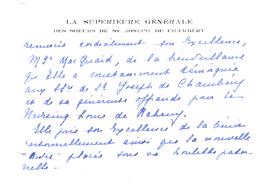 LA SUPERIEURE GÉNÉRALE
DES SŒURS DE ST JOSEPH DE CHAMBÉRY
remercie cordialement son Excellence,
Mgr MacQuaid, de la bienveillance
qu'Elle a constamment témoignée
aux Srs de St Joseph de Chambéry
et de sa généreuse offrande pour le
Nursing home de Raheny.
Elle prie son Excellence de la bénir
maternellement ainsi que la nouvelle
placée sous sa houlette pater-
nelle.-